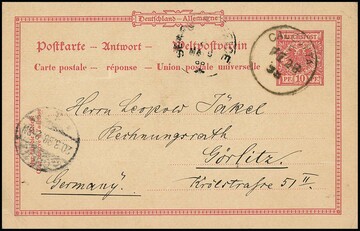 Deutschland - Allemagne.
Postkarte - Antwort - Weltpostverein
Carte postale - réponse - Union postale universelle
REICHSPOST
10
Herrn Leopold Jäkel
Rechnungsrath
Görlitz.
Germany.
Krölstraße 51 II